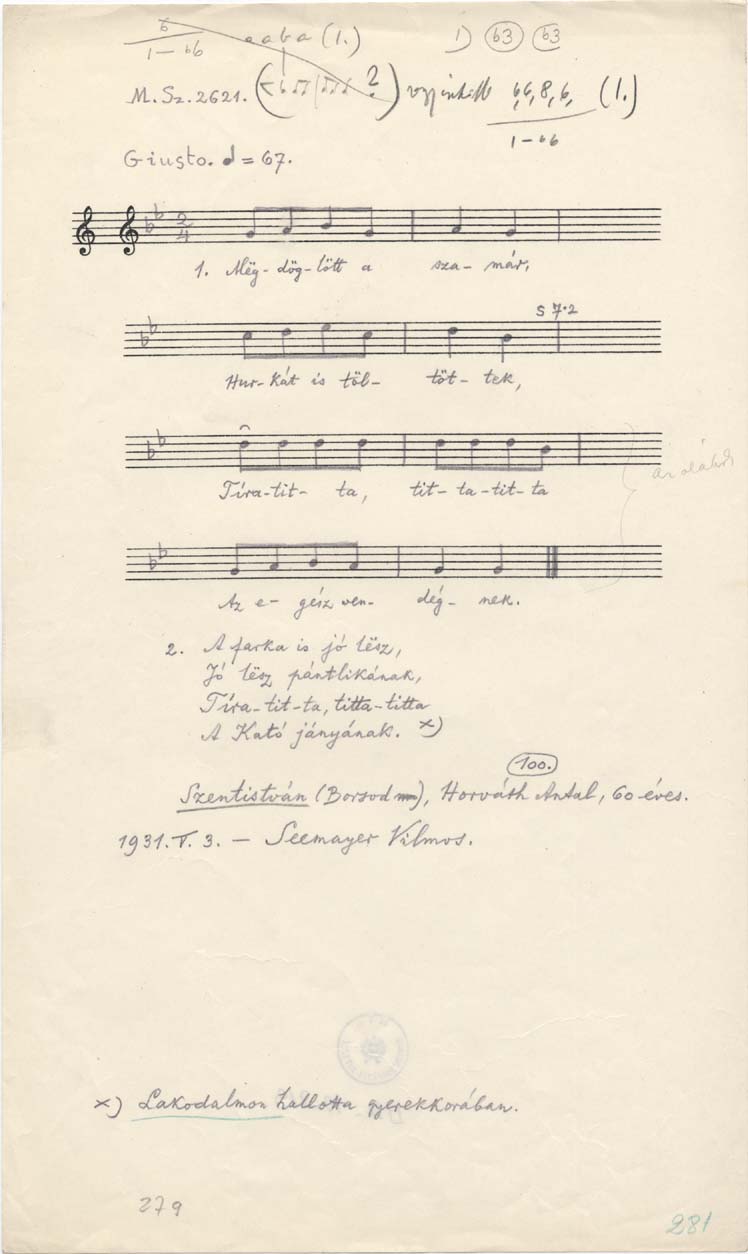 6 a a b a (1.) 1) b3 b3
1-b6
M. Sz. 2621. ( ? ) 6,6,8,6, (1.)
1-b6
Giusto. = 67.
2/4
1. Mëg-dög-lött a sza-már,
s 7·2
Hur-kát is töl- töt-tek,
Tíra-tit- ta, tit-ta-tit-ta
Az e- gész ven- dég- nek.
2. A farka is jó lësz,
Jó lësz pántlikának,
Tíra-tit-ta, titta-titta
A Kató jányának. x)
100.
Szentistván (Borsod), Horváth Antal, 60 éves.
1931. V. 3. — Seemayer Vilmos.
x) Lakodalmon hallotta gyerekkorában.
279
281